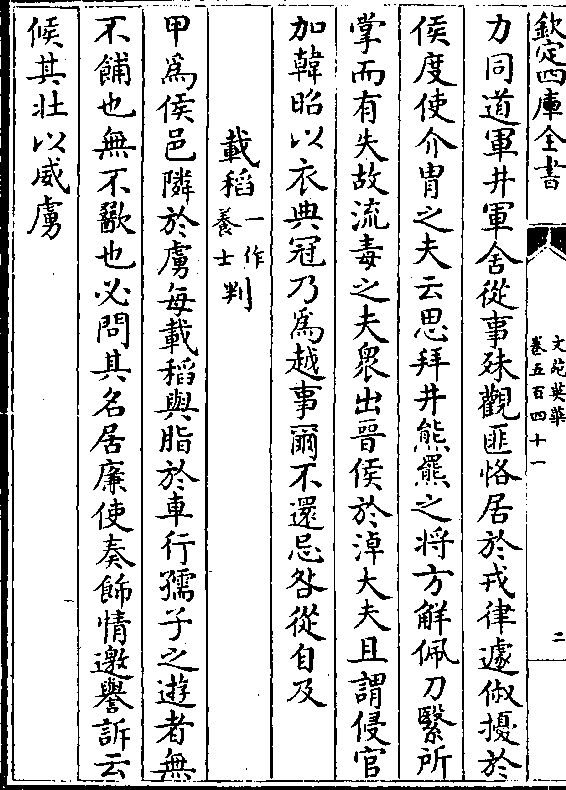 欽定四庫全書
文苑英華
卷五百四十一
二
力同道軍井軍舍從事殊觀匪恪居於戎律遽俶擾於
侯度使介胄之夫云思拜井熊羆之将方解佩刀繄所
掌而有失故流毒之夫衆出晉侯於淖大夫且謂侵官
加韓昭以衣典冠乃爲越事爾不還忌咎從自及
載稻一作養士判
甲爲侯邑隣於虜每載稻與脂於車行孺子之遊者無
不餔也無不歠也必問其名居廉使奏飾情邀譽訴云
候其壮以威虜